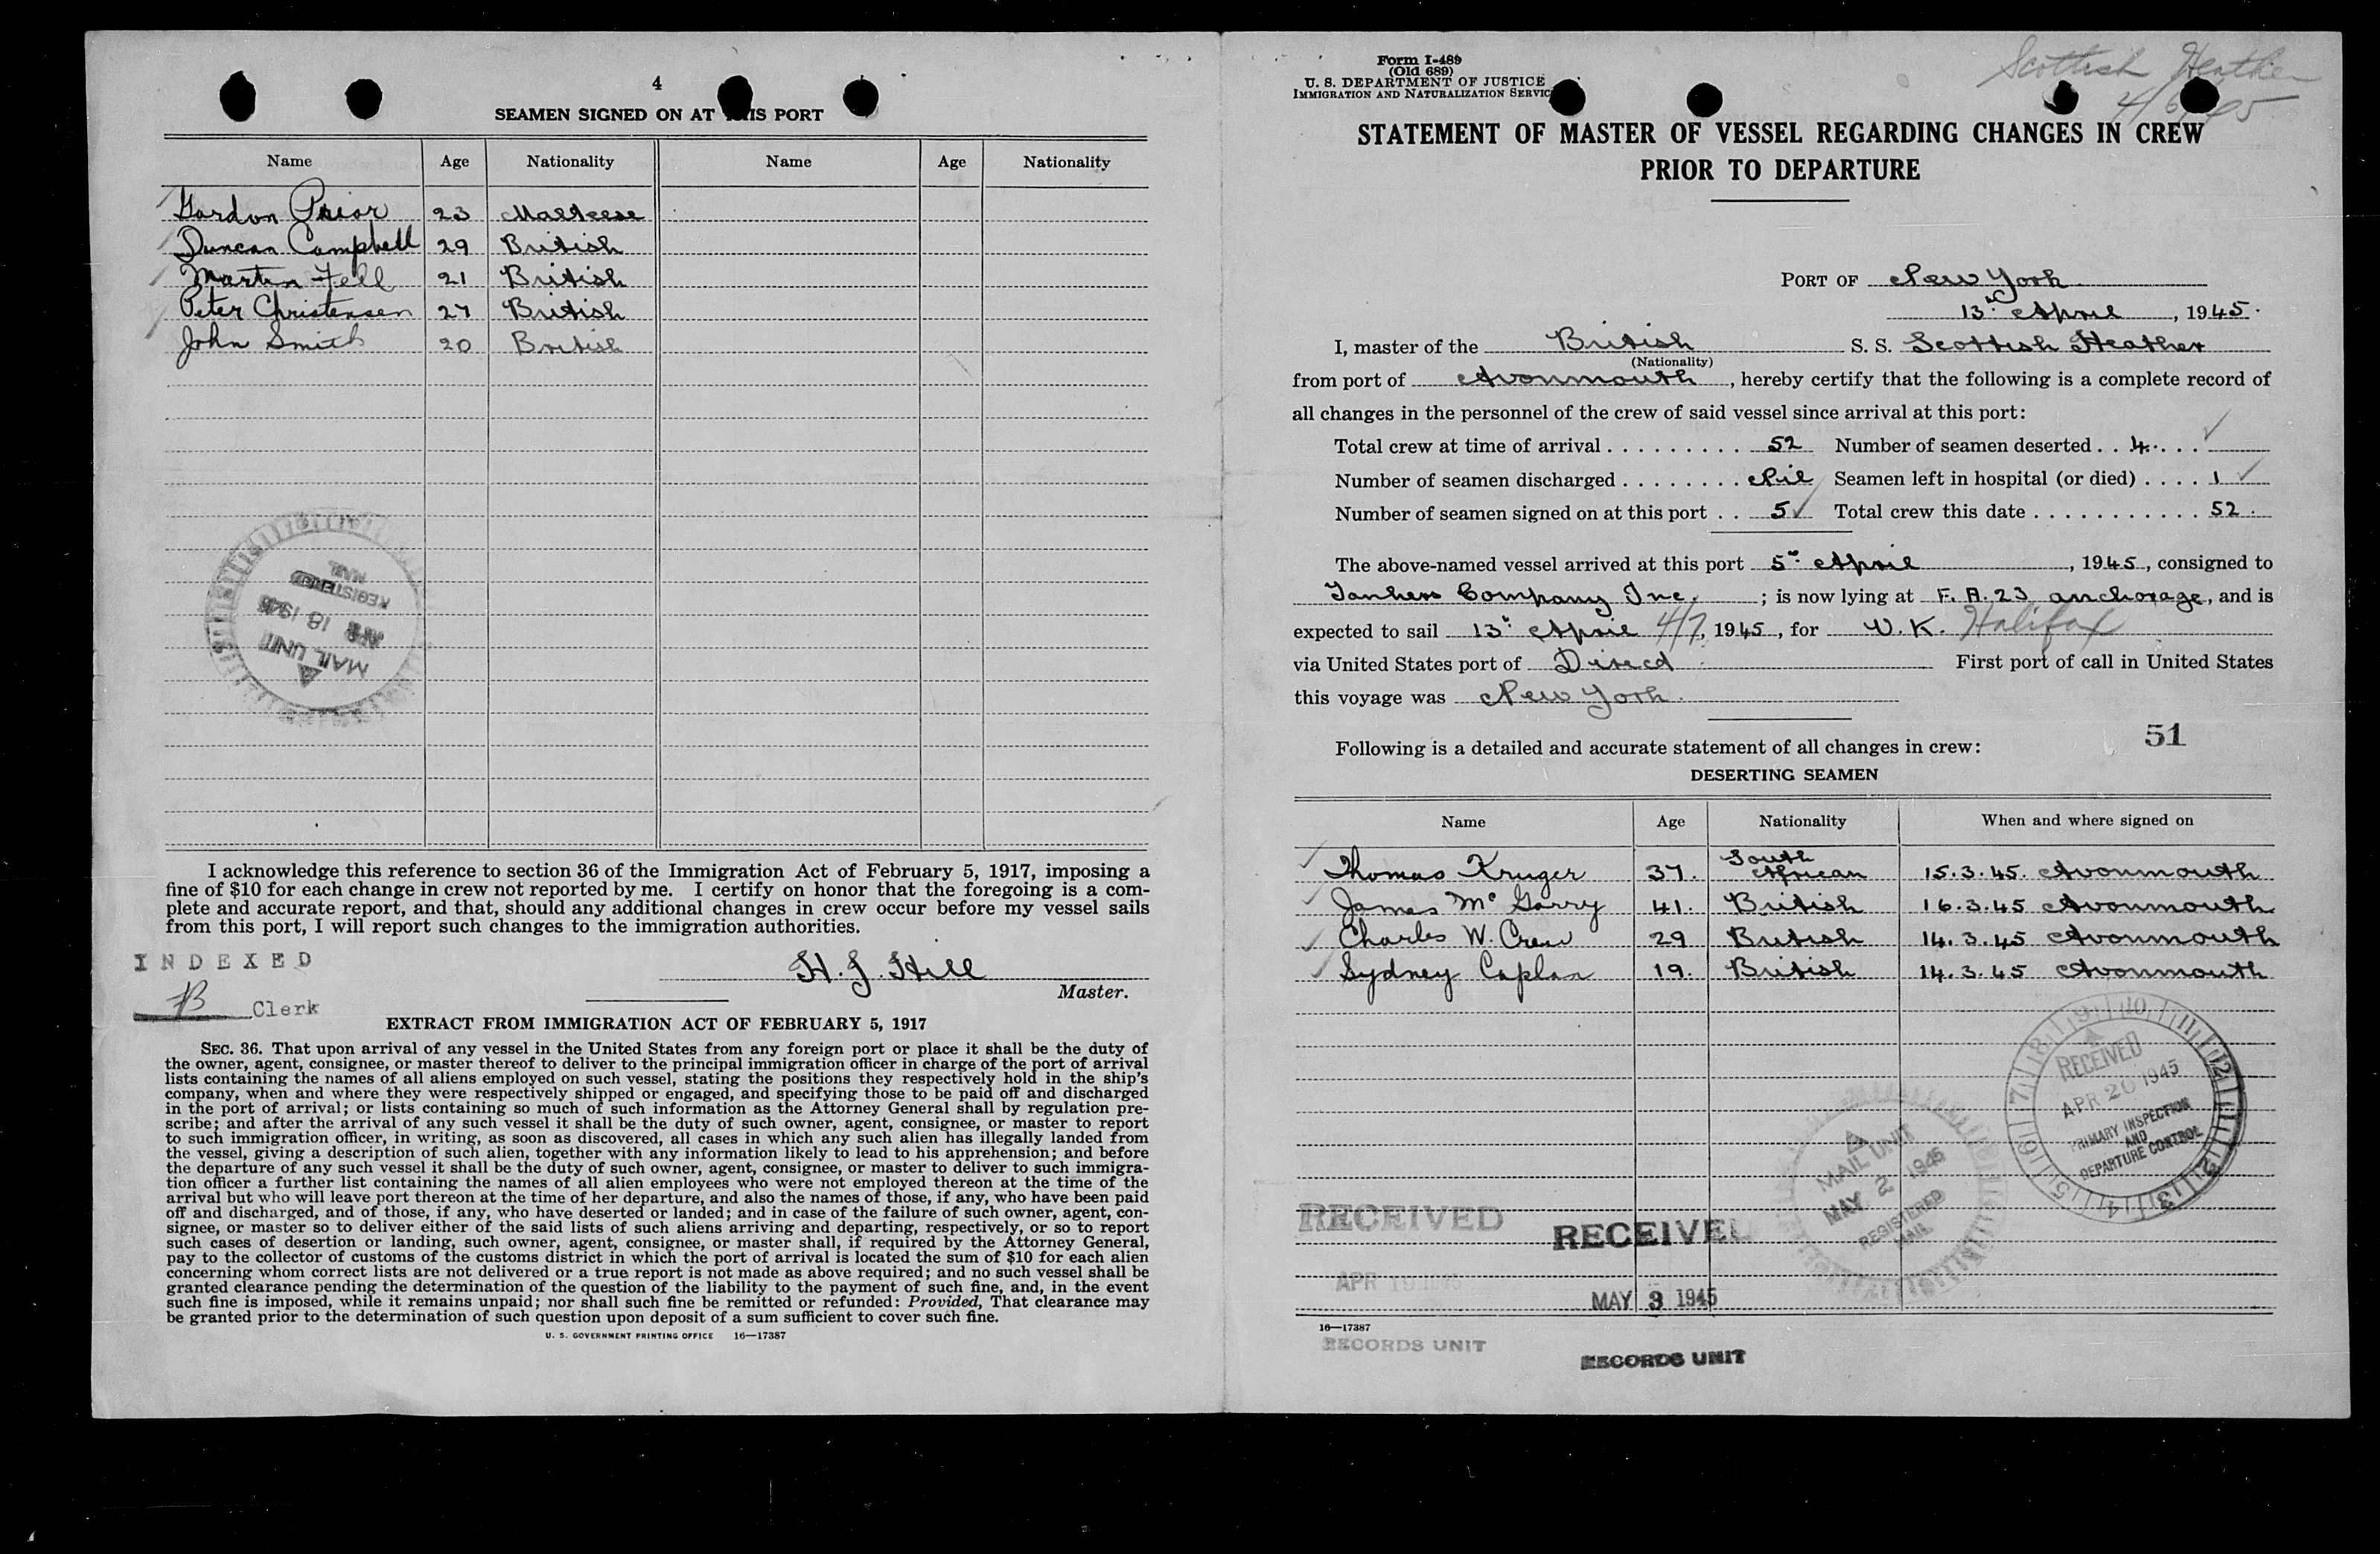 4
SEAMEN SIGNED ON AT THIS PORT
Name Age Nationality Name Age Nationality
Gordon Prior 23 Malteese
Duncan Campbell 29 British
Martin Fell 21 British
Peter Christensen 27 British
John Smith 20 British
MAIL UNIT
APR 18 1945
REGISTERED
MAIL
I acknowledge this reference to section 36 of the Immigration Act of February 5, 1917, imposing a
fine of $10 for each change in crew not reported by me. I certify on honor that the foregoing is a com-
plete and accurate report, and that, should any additional changes in crew occur before my vessel sails
from this port, I will report such changes to the immigration authorities.
INDEXED
Clerk
H. J. Hill
Master.
EXTRACT FROM IMMIGRATION ACT OF FEBRUARY 5, 1917
SEC. 36. That upon arrival of any vessel in the United States from any foreign port or place it shall be the duty of
the owner, agent, consignee, or master thereof to deliver to the principal immigration officer in charge of the port of arrival
lists containing the names of all aliens employed on such vessel, stating the positions they respectively hold in the ship's
company, when and where they were respectively shipped or engaged, and specifying those to be paid off and discharged
in the port of arrival; or lists containing so much of such information as the Attorney General shall by regulation pre-
scribe; and after the arrival of any such vessel it shall be the duty of such owner, agent, consignee, or master to report
to such immigration officer, in writing, as soon as discovered, all cases in which any such alien has illegally landed from
the vessel, giving a description of such alien, together with any information likely to lead to his apprehension; and before
the departure of any such vessel it shall be the duty of such owner, agent, consignee, or master to deliver to such immigra-
tion officer a further list containing the names of all alien employees who were not employed thereon at the time of the
arrival but who will leave port thereon at the time of her departure, and also the names of those, if any, who have been paid
off and discharged, and of those, if any, who have deserted or landed; and in case of the failure of such owner, agent, con-
signee, or master so to deliver either of the said lists of such aliens arriving and departing, respectively, or so to report
such cases of desertion or landing, such owner, agent, consignee, or master shall, if required by the Attorney General,
pay to the collector of customs of the customs district in which the port of arrival is located the sum of $10 for each alien
concerning whom correct lists are not delivered or a true report is not made as above required; and no such vessel shall be
granted clearance pending the determination of the question of the liability to the payment of such fine, and, in the event
such fine is imposed, while it remains unpaid; nor shall such fine be remitted or refunded: Provided, That clearance may
be granted prior to the determination of such question upon deposit of a sum sufficient to cover such fine.
U. S. GOVERNMENT PRINTING OFFICE 16—17387
Form I-489
(Old 689)
U. S. DEPARTMENT OF JUSTICE
IMMIGRATION AND NATURALIZATION SERVICE
Scottish Heather
STATEMENT OF MASTER OF VESSEL REGARDING CHANGES IN CREW
PRIOR TO DEPARTURE
PORT OF New York
13th April, 1945.
I, master of the British S. S. Scottish Heather
(Nationality)
from port of Avonmouth, hereby certify that the following is a complete record of
all changes in the personnel of the crew of said vessel since arrival at this port:
Total crew at time of arrival 52 Number of seamen deserted 4
Number of seamen discharged Nil Seamen left in hospital (or died) 1
Number of seamen signed on at this port 5 Total crew this date 52
The above-named vessel arrived at this port 5th April, 1945, consigned to
Tankers Company Inc.; is now lying at F. A. 23 anchorage, and is
expected to sail 13th April 4/7, 1945, for U. K. Halifax
via United States port of Direct First port of call in United States
this voyage was New York.
51
Following is a detailed and accurate statement of all changes in crew:
DESERTING SEAMEN
Name Age Nationality When and where signed on
Thomas Kruger 37. South African 15.3.45. Avonmouth
James McGarry 41. British 16.3.45 Avonmouth
Charles W. Crew 29 British 14.3.45 Avonmouth
Sydney Caplan 19. British 14.3.45 Avonmouth
RECEIVED
APR 20 1945
PRIMARY INSPECTION
AND
DEPARTURE CONTROL
MAIL UNIT
MAY 2 1945
REGISTERED
MAIL
RECEIVED
APR 19 1945
RECORDS UNIT
RECEIVED
MAY 3 1945
RECORDS UNIT
16—17387